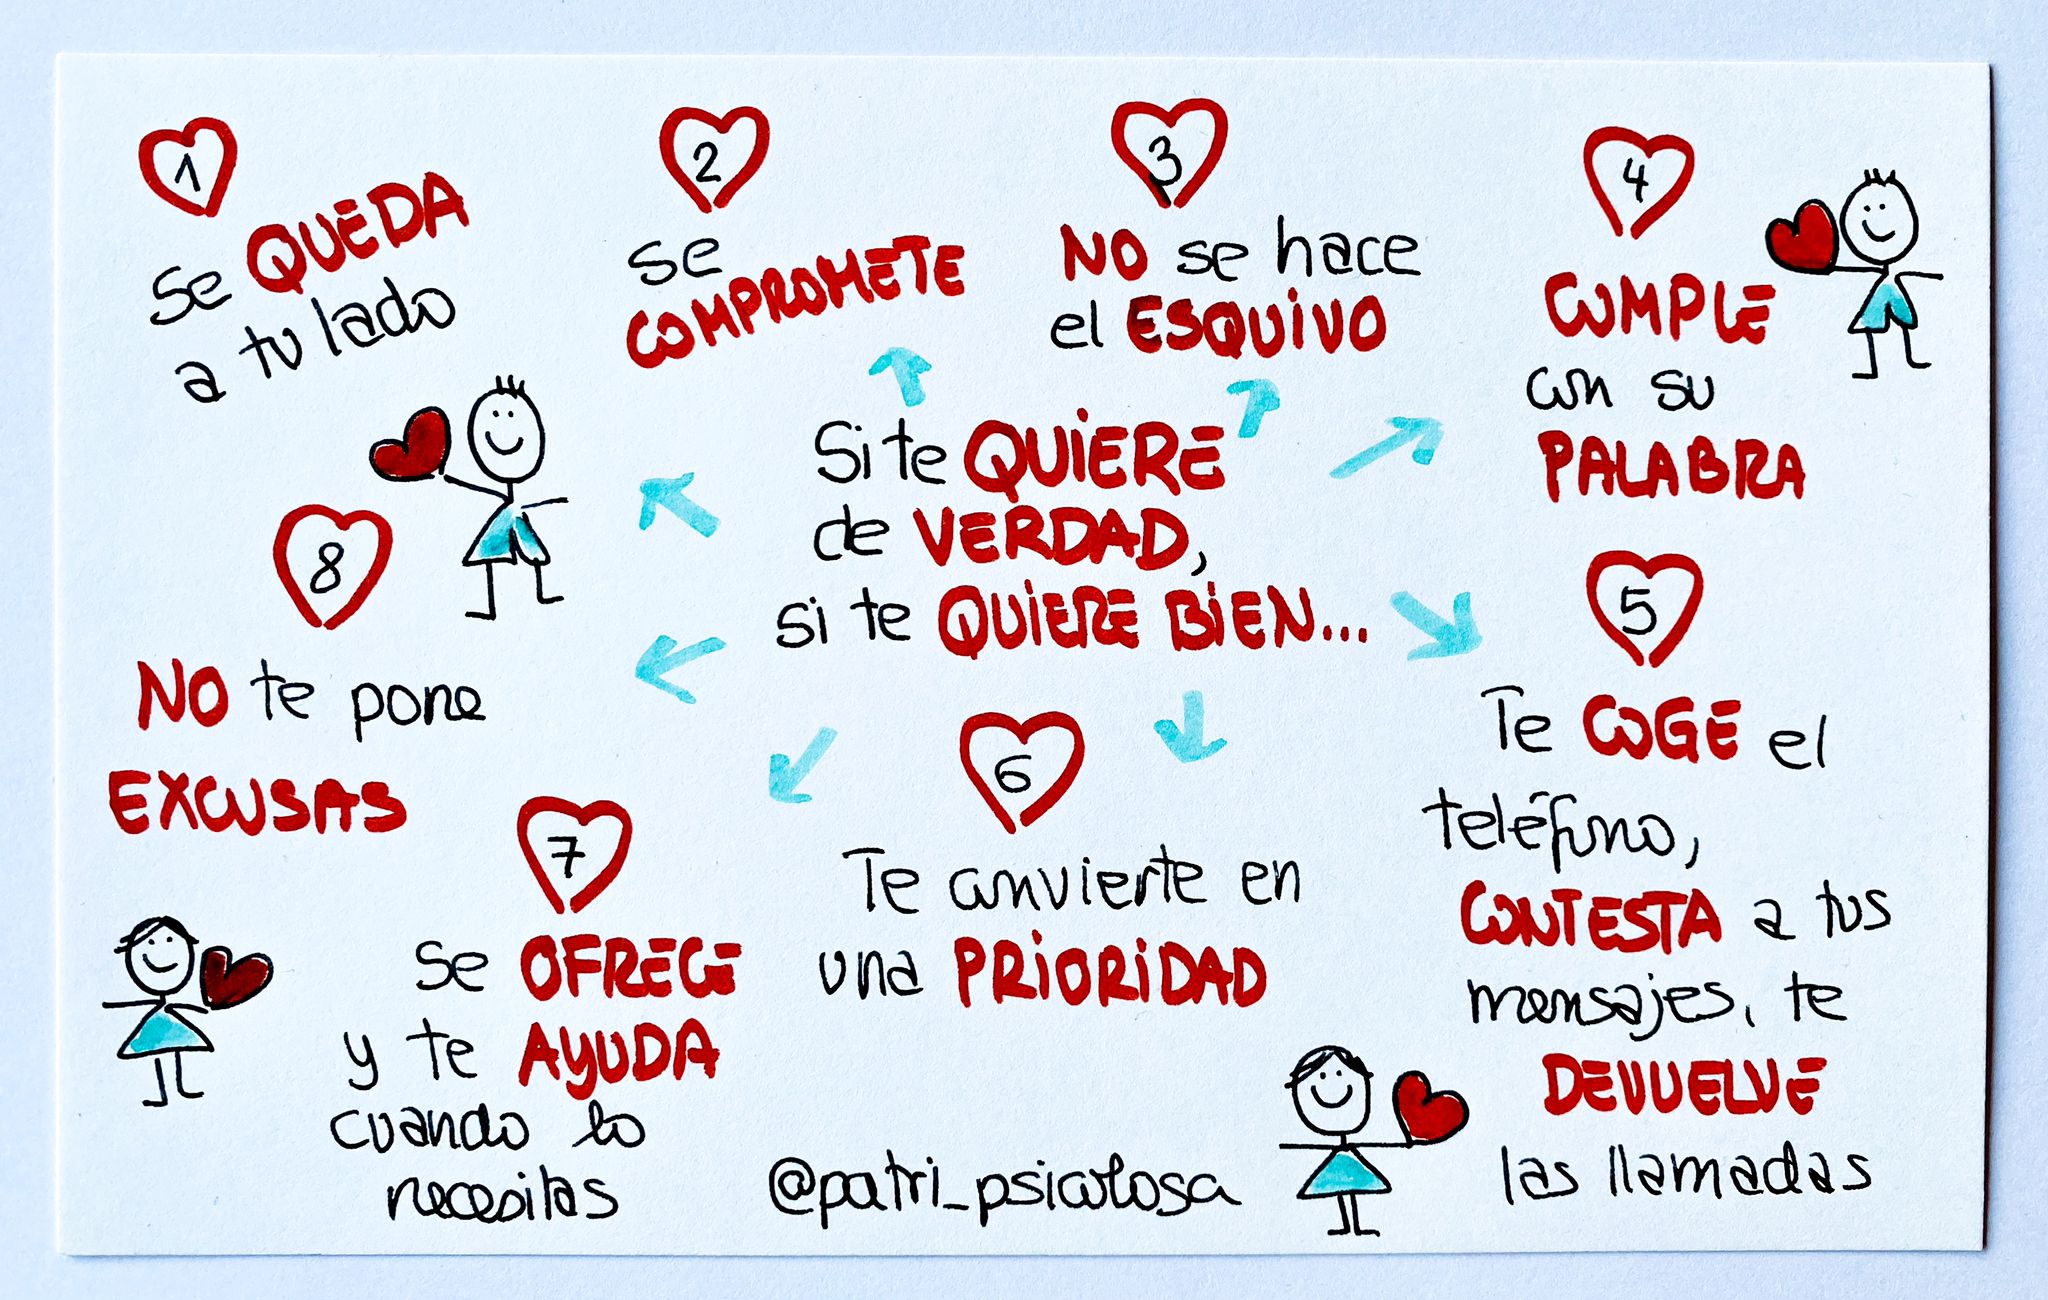 1
se QUEDA
a tu lado
2
se
COMPROMETE
3
NO se hace
el ESQUIVO
4
CUMPLE
con su
PALABRA
Si te QUIERE
de VERDAD,
si te QUIERE BIEN...
5
Te COGE el
teléfono,
CONTESTA a tus
mensajes, te
DEVUELVE
las llamadas
6
Te convierte en
una PRIORIDAD
7
se OFRECE
y te AYUDA
cuando lo
necesitas
8
NO te pone
EXCUSAS
@patri_psicologa